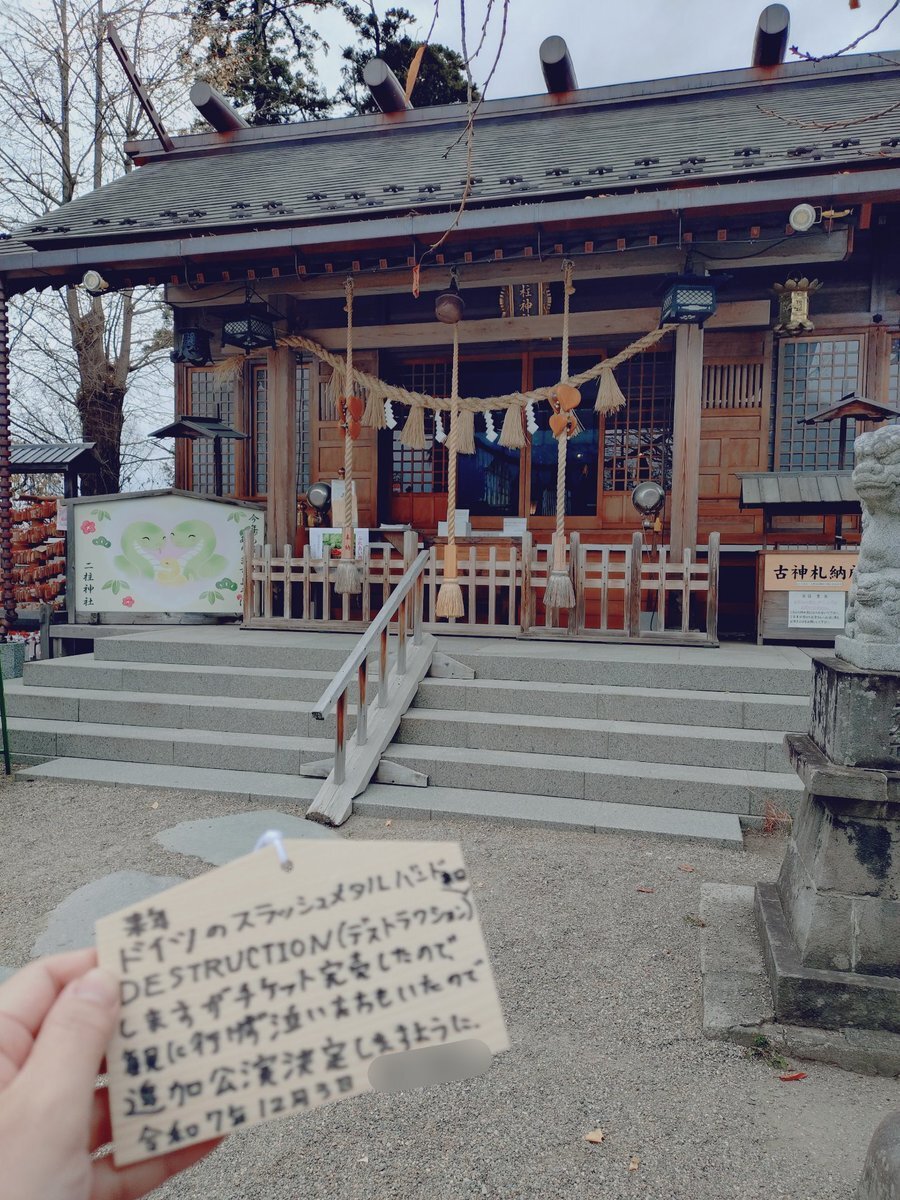 柱神
今年
二柱神社
古神札納
来年
ドイツのスラッシュメタルバンド
DESTRUCTION(デストラクション)
しますがチケット完売したので
観に行けず泣いた方もいたので
追加公演決定しますように.
令和7年12月3日